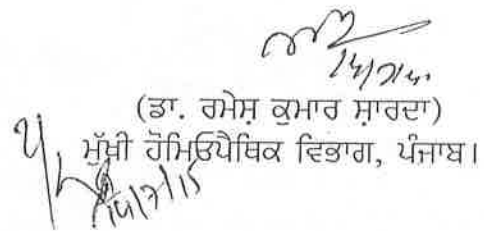 (ਡਾ. ਰਮੇਸ਼ ਕੁਮਾਰ ਸ਼ਾਰਦਾ)
ਮੁੱਖੀ ਹੋਮਿਓਪੈਥਿਕ ਵਿਭਾਗ, ਪੰਜਾਬ।
14/7/15